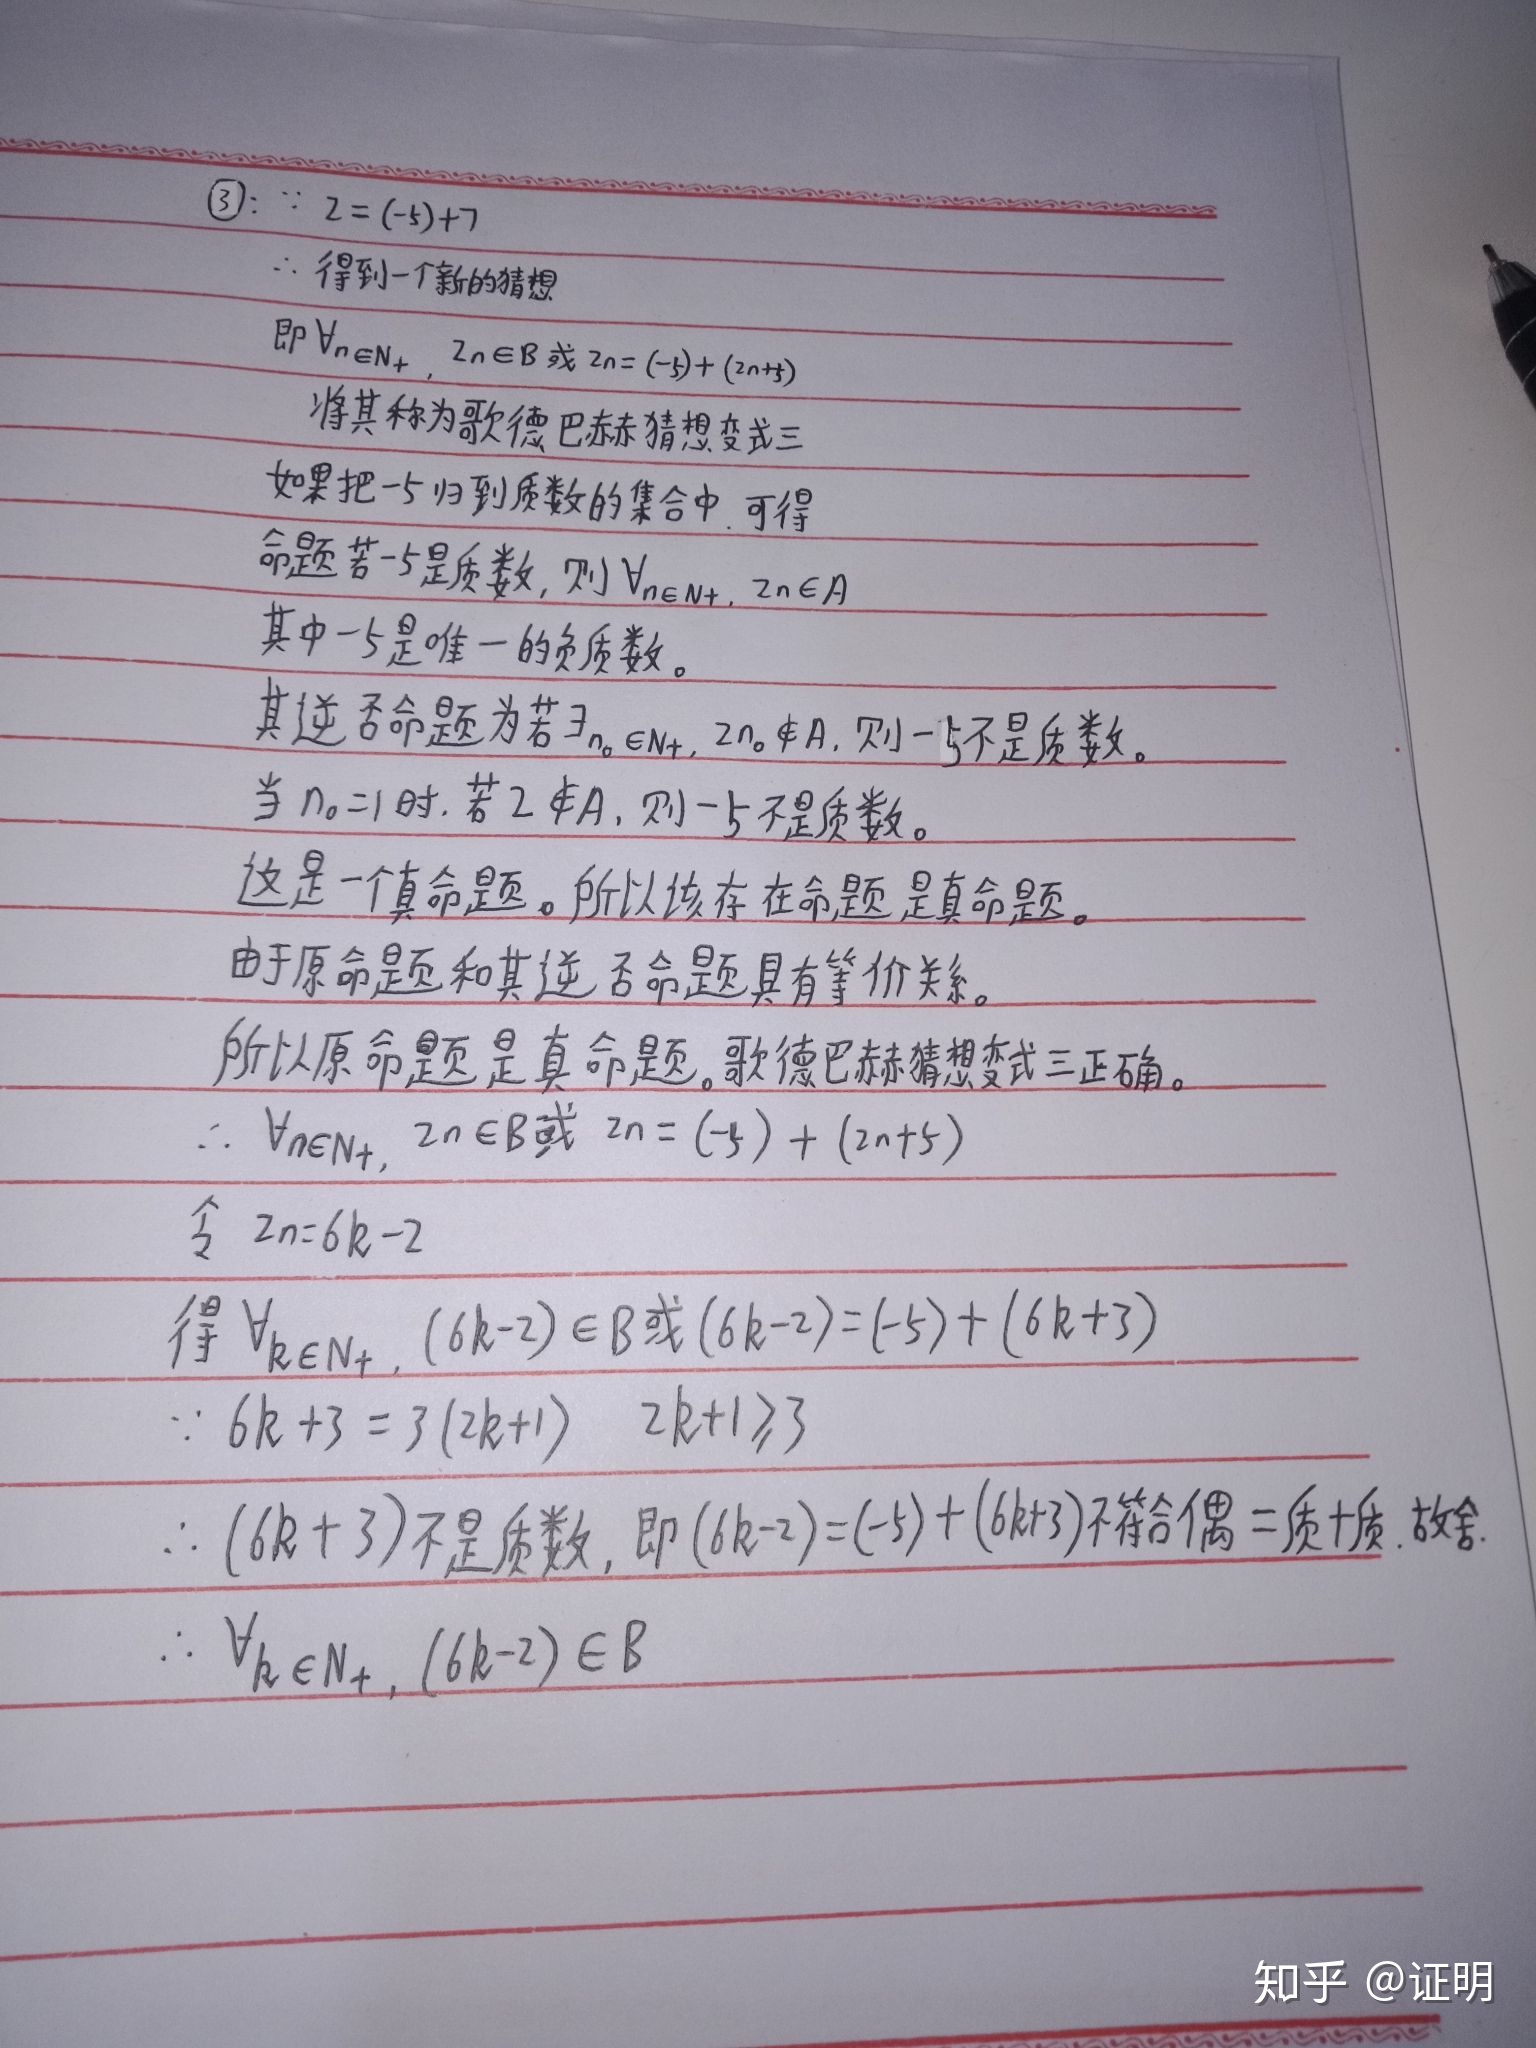 ③: ∵ 2=(-5)+7
∴ 得到一个新的猜想
即 ∀n∈N+, 2n∈B 或 2n=(-5)+(2n+5)
将其称为歌德巴赫猜想变式三
如果把-5归到质数的集合中,可得
命题若-5是质数,则∀n∈N+, 2n∈A
其中-5是唯一的负质数。
其逆否命题为若∃n₀∈N+, 2n₀∉A,则-5不是质数。
当n₀=1时.若2∉A,则-5不是质数。
这是一个真命题。所以该存在命题是真命题。
由于原命题和其逆否命题具有等价关系。
所以原命题是真命题。歌德巴赫猜想变式三正确。
∴ ∀n∈N+, 2n∈B或 2n=(-5)+(2n+5)
令 2n=6k-2
得 ∀k∈N+, (6k-2)∈B或(6k-2)=(-5)+(6k+3)
∵ 6k+3=3(2k+1) 2k+1⩾3
∴ (6k+3)不是质数,即(6k-2)=(-5)+(6k+3)不符合偶=质+质.故舍.
∴ ∀k∈N+, (6k-2)∈B
知乎 @证明